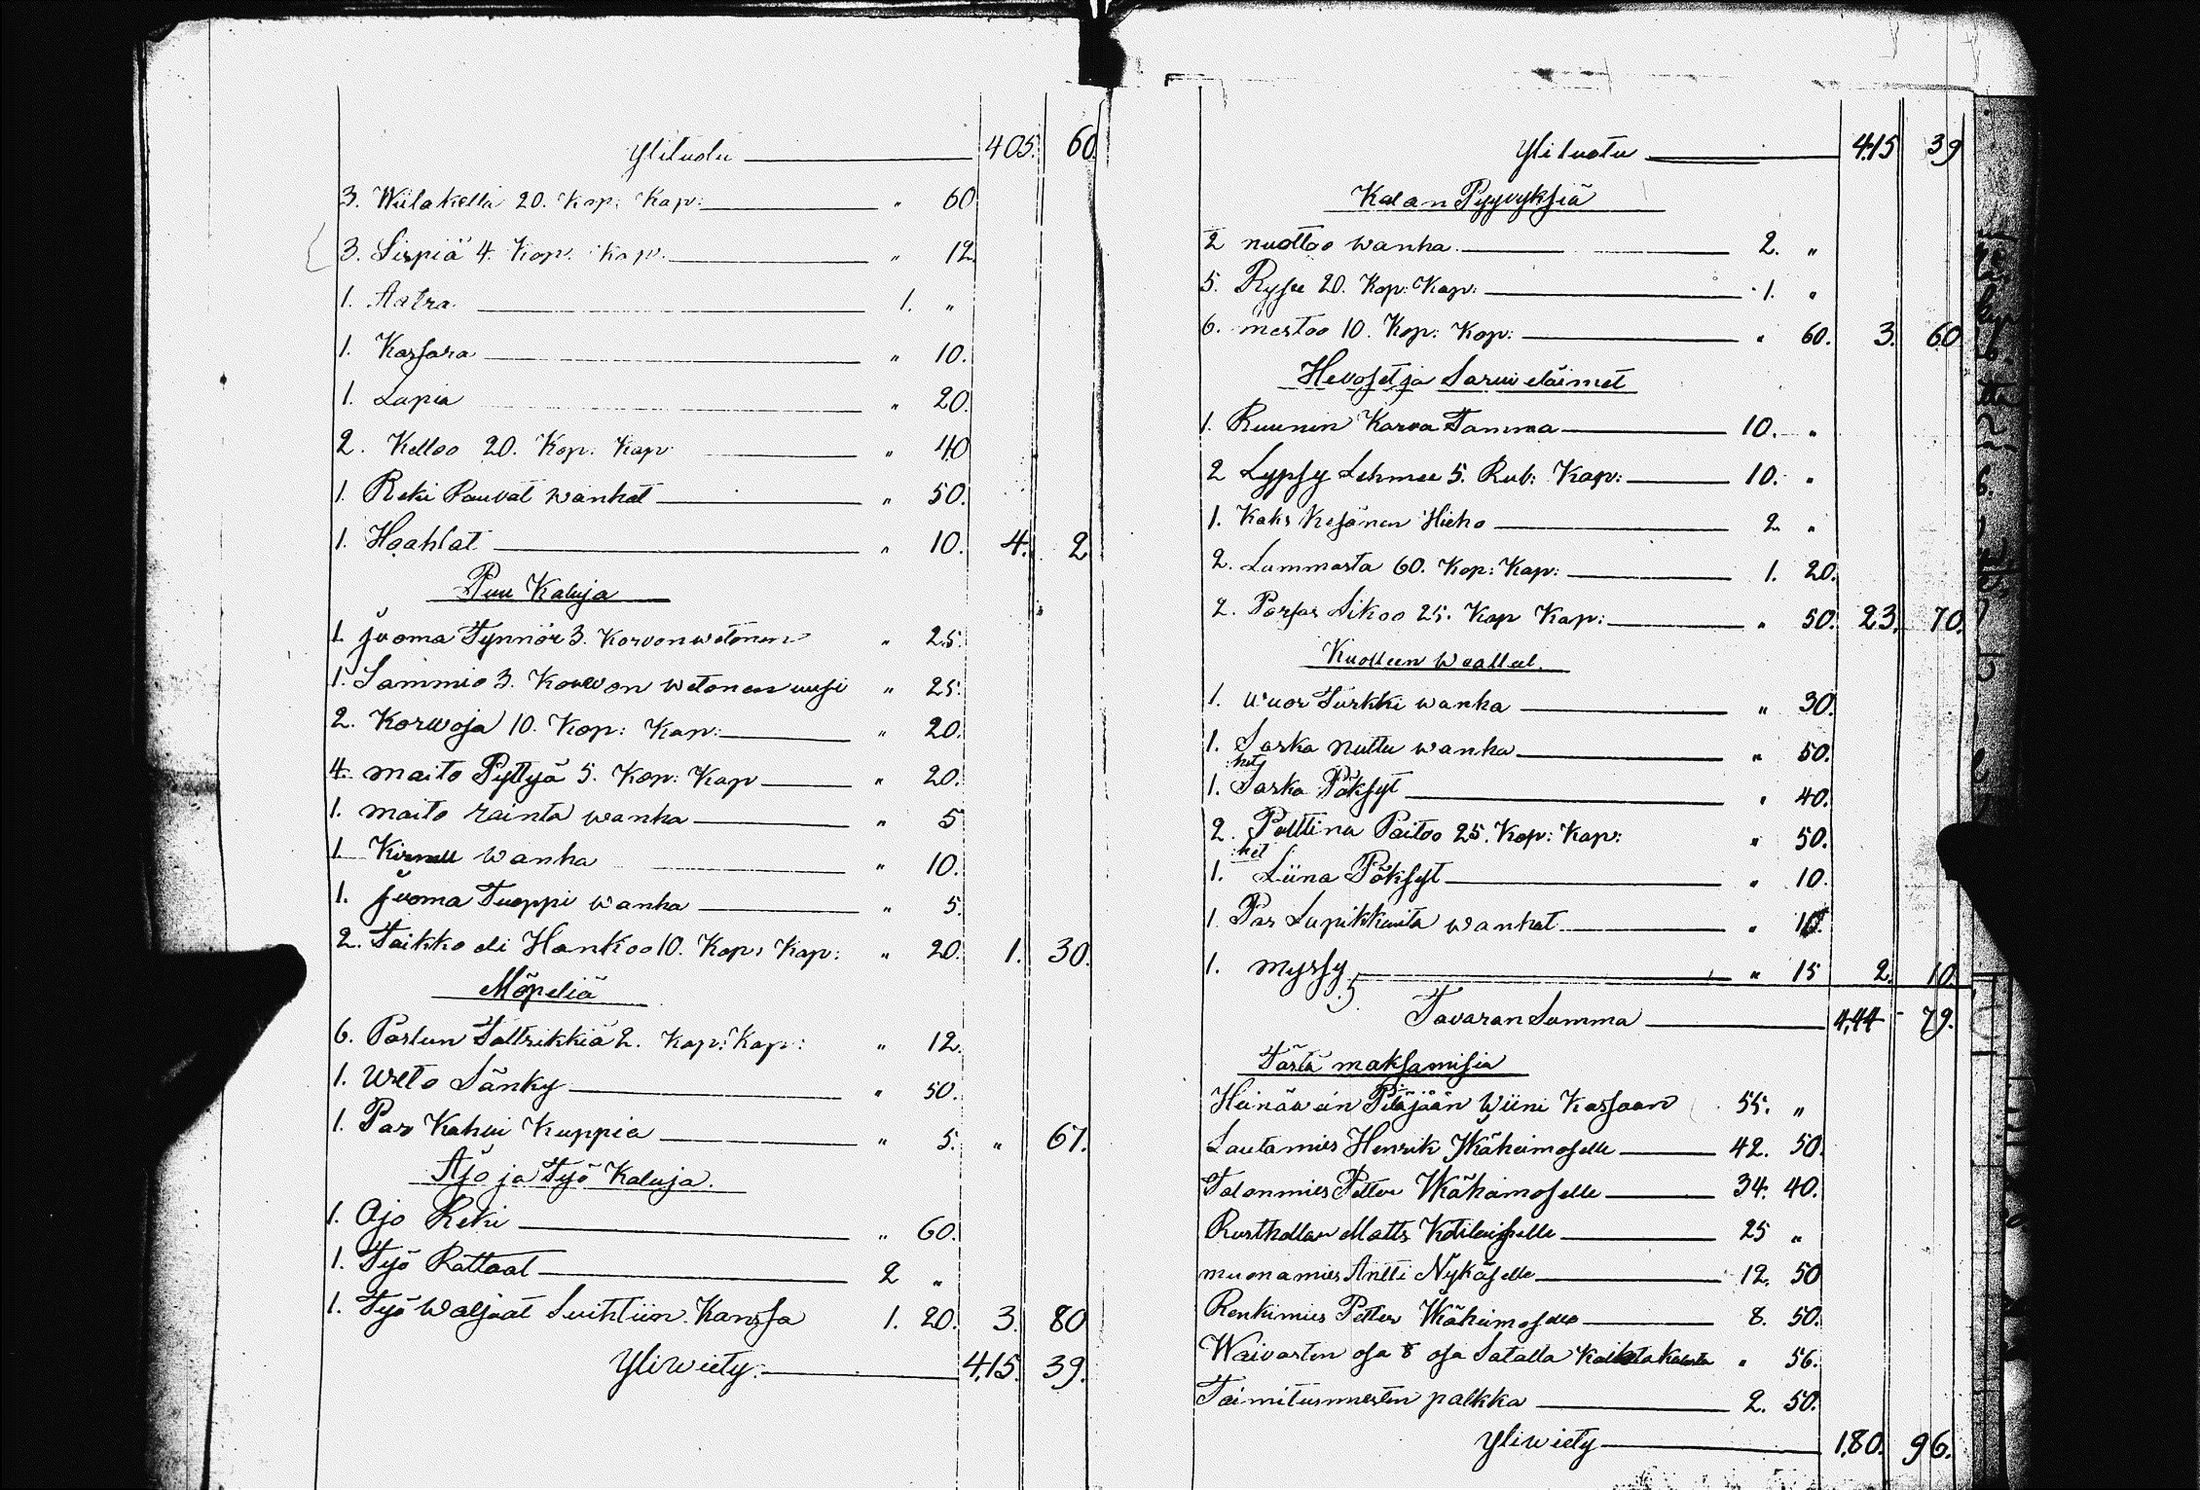 Ylituotu 405. 60.
3. Wiilakella 20. Kop: Kap: " 60
3. Sirpiä 4. Kop: Kap: " 12.
1. Aatra. 1. "
1. Kassara " 10.
1. Lapia " 20.
2. Kelloo 20. Kop: Kap " 40
1. Reki Rauvat wanhat " 50.
1. Haahlat " 10. 4. 2
Puu Kaluja
1. Juoma Tynnör 3. Korvon wetonen " 25.
1. Sammio 3. Korwon wetonen uusi " 25.
2. Korwoja 10. Kop: Kap: " 20.
4. maito Pyttyä 5. Kop: Kap " 20.
1. maito rainta wanha " 5
1. Kirnu wanha " 10.
1. Juoma Tuoppi wanha " 5.
2. Taikko eli Hankoo 10. Kop: Kap: " 20. 1. 30.
Möpeliä
6. Paslun Taltrikkiä 2. Kop: Kap: " 12.
1. Weto Sänky " 50.
1. Par Kahvi Kuppia " 5. " 67.
Ajo ja Työ Kaluja.
1. Ajo Reki " 60.
1. Työ Rattaat 2 "
1. Työ Waljaat Suihtiin Kanssa 1. 20. 3. 80
Yliwiety. 415. 39.
Ylituotu 415 39
Kalan Pyyvyksiä
2 nuottoo wanha 2. "
5. Rysee 20. Kop: Kap: 1. "
6. mertoo 10. Kop: Kop: " 60. 3. 60
Hevoset ja Sarwi eläimet
1. Ruunin Karva Tamma 10. "
2 Lypsy Lehmee 5. Rub: Kap: 10. "
1. Kaks Kesänen Hieho 2 "
2. Lammasta 60. Kop: Kap: 1. 20.
2. Porsas Sikoo 25. Kop Kap: " 50. 23. 70.
Kuolleen Waatteet.
1. Wuor Turkki wanha " 30.
1. Sarka Nuttu wanha " 50.
1. Sarka Pöksyt " 40.
2. Polttina Paitoo 25. Kop: Kap: " 50.
1. Liina Pöksyt " 10.
1. Par Lapikkaita wanhat " 10.
1. Myssy " 15 2. 10.
Tavaran Summa 444 79.
Tästä maksamisia
Heinäwein Pitäjään Wiini Kassaan 55. "
Lautamies Henrik Wähäimoselle 42. 50.
Talonmies Petter Wähäimoselle 34. 40.
Rusthollar Matts Kotilaiselle 25 "
muonamies Antti Nykäselle 12. 50
Renkimies Petter Wähäimoselle 8. 50.
Waivasten osa 8 osa Satalla Kaikesta Kalusta " 56.
Toimitusmiesten palkka 2. 50.
Yliwiety 180. 96.